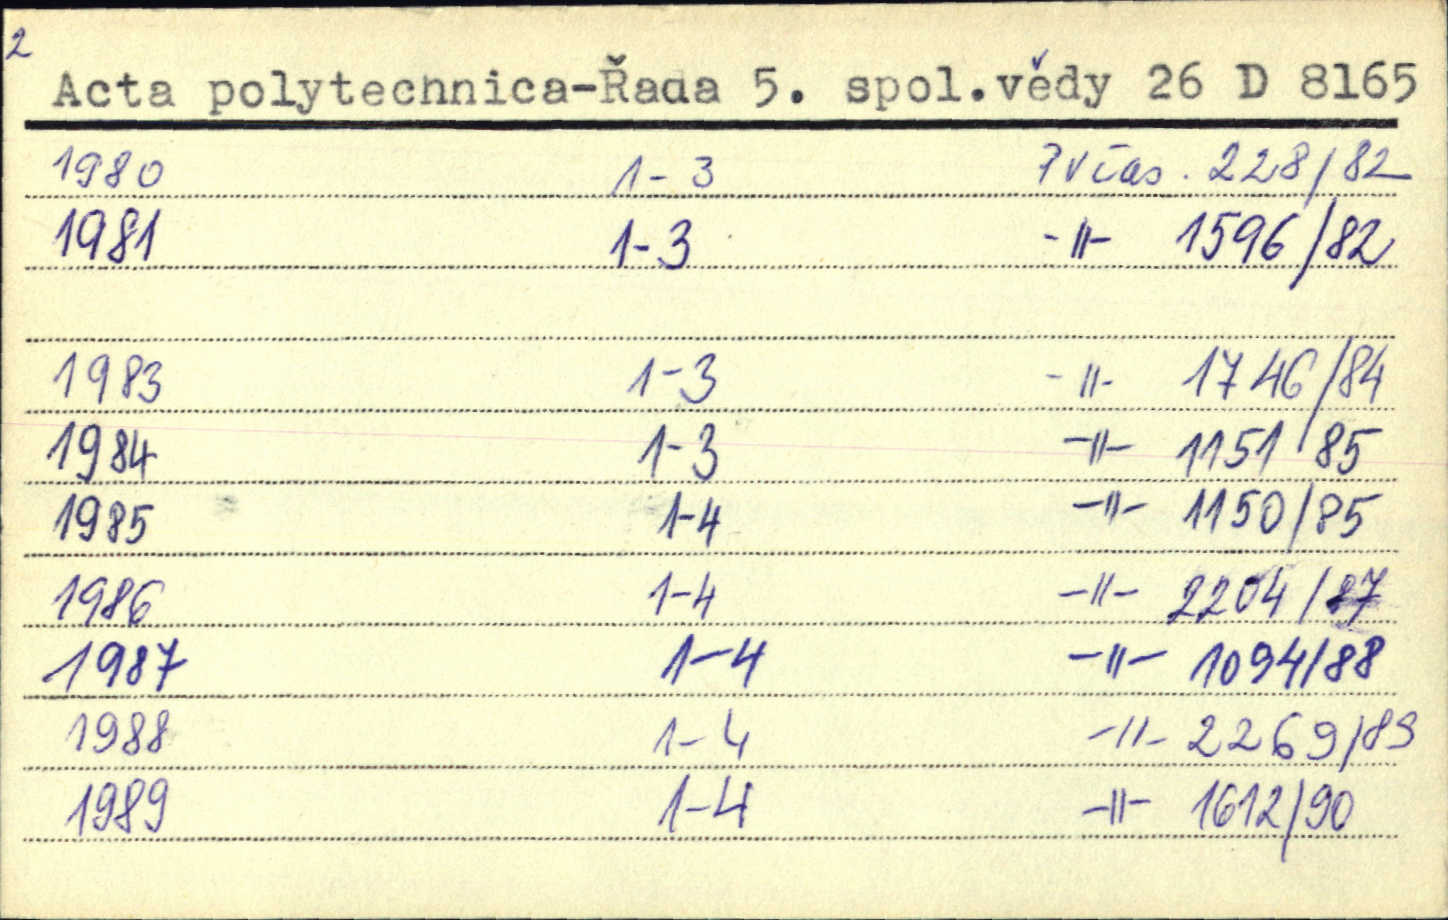 2
Acta polytechnica-Řada 5. spol.vědy 26 D 8165
1980 1-3 Pv čas. 228/82
1981 1-3 -"- 1596/82
1983 1-3 -"- 1746/84
1984 1-3 -"- 1151/85
1985 1-4 -"- 1150/85
1986 1-4 -"- 2204/87
1987 1-4 -"- 1094/88
1988 1-4 -"- 2269/89
1989 1-4 -"- 1612/90